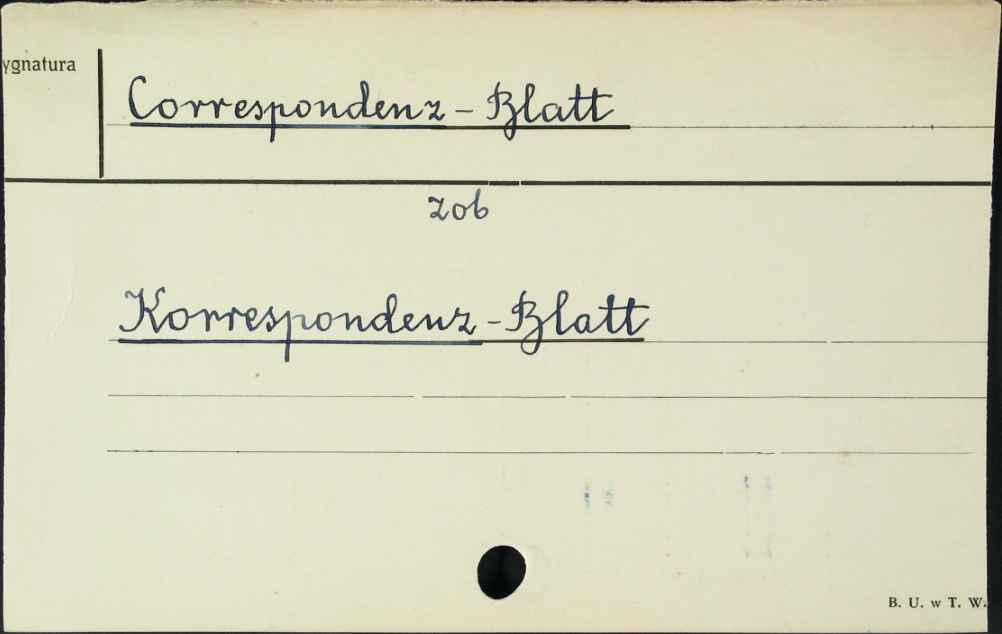 ygnatura
Correspondenz-Blatt
zob
Korrespondenz-Blatt
B. U. w T. W.